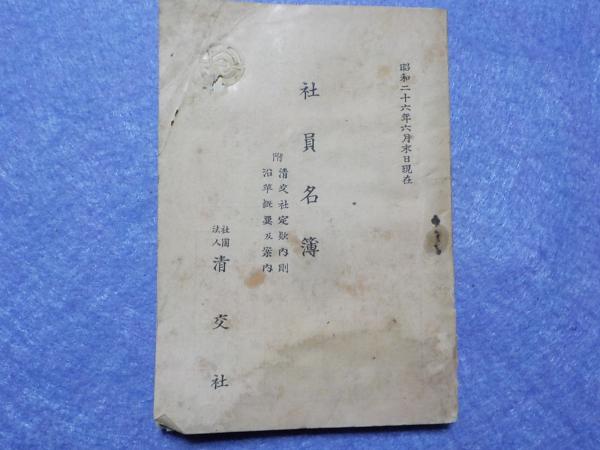 昭和二十六年六月末日現在
社員名簿
附
清交社定款内則
沿革概要及案内
社團
法人
清交社